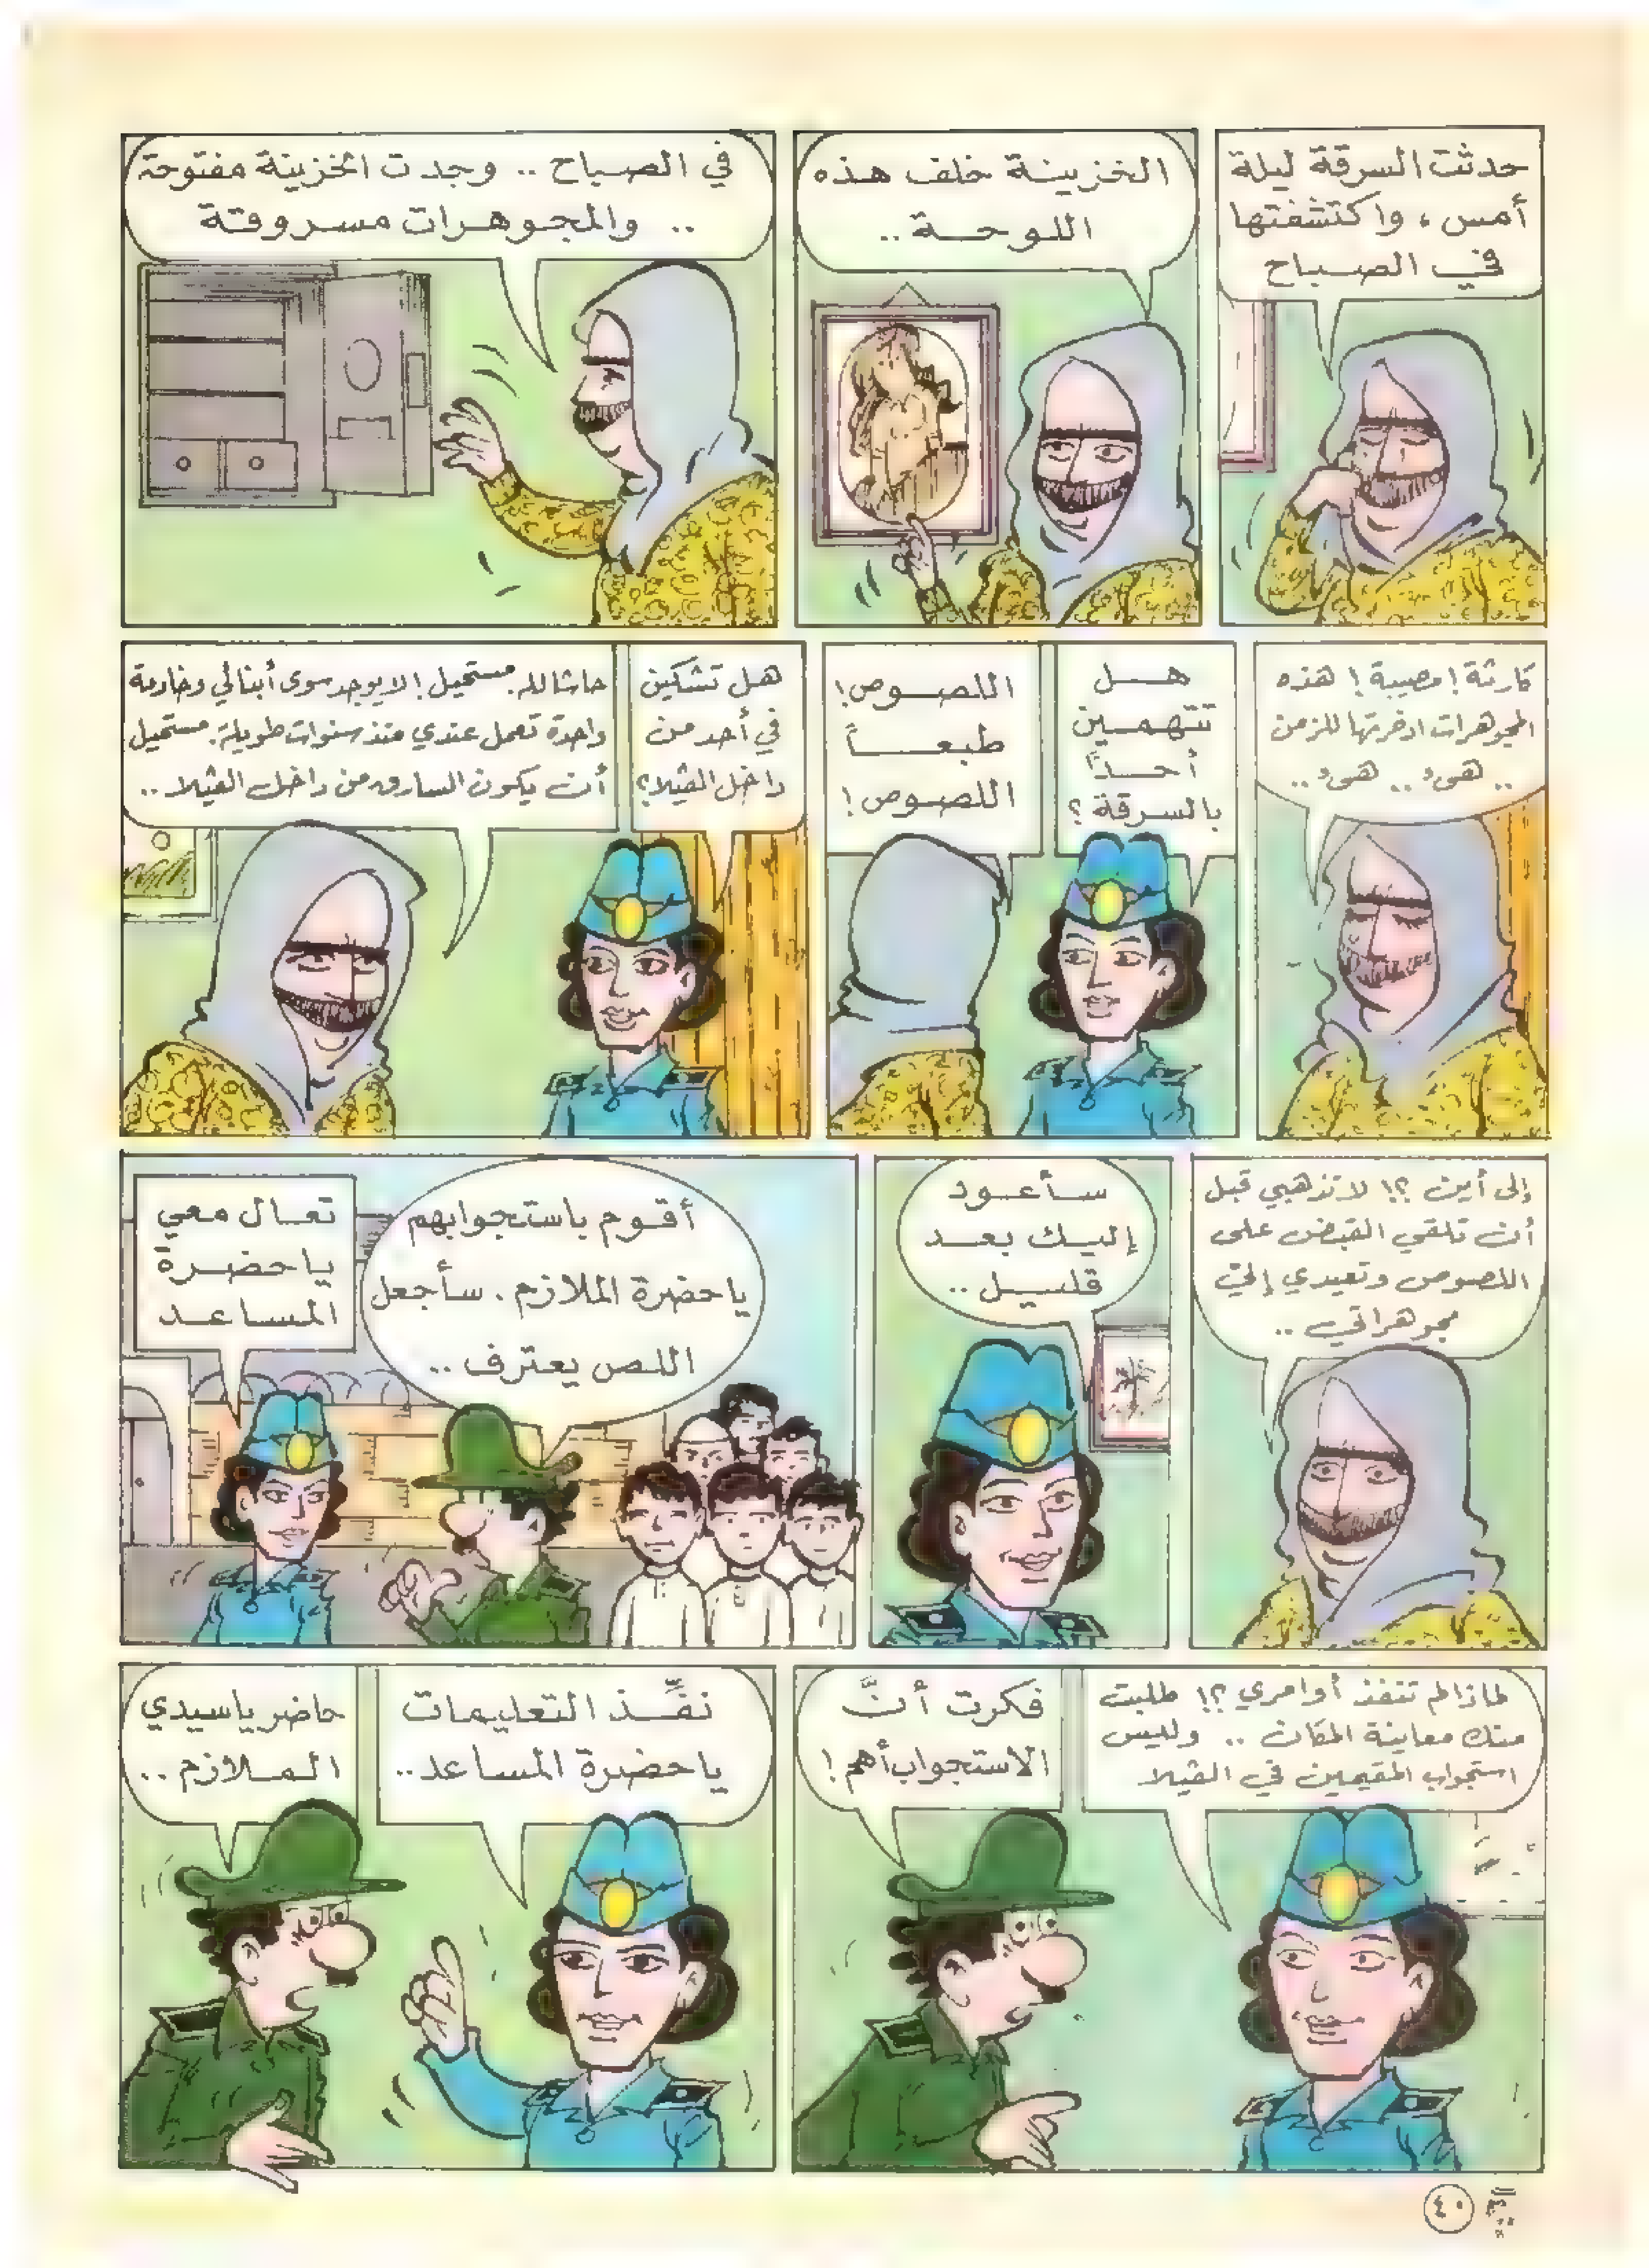 حدثت السرقة ليلة
أمس، واكتشفتها
في الصباح
الخزينة خلف هذه
اللوحة ..
في الصباح .. وجدت الخزينة مفتوحة
.. والمجوهرات مسروقة
كارثة! مصيبة! هذه
المجوهرات ادخرتها للزمن
.. هىء .. هىء ..
هل
تتهمين
أحداً
بالسرقة؟
اللصوص!
طبعاً
اللصوص!
هل تشكين
في أحد من
داخل الڤيلا؟
حاشا لله. مستحيل! لا يوجد سوى أبنائي وخادمة
واحدة تعمل عندي منذ سنوات طويلة. مستحيل
أن يكون السارق من داخل الڤيلا ..
إلى أين ؟! لا تذهبي قبل
أن تلقي القبض على
اللصوص وتعيدي إليّ
مجوهراتي ..
سأعود
إليك بعد
قليل ..
أقوم باستجوابهم
يا حضرة الملازم . سأجعل
اللص يعترف ..
تعال معي
يا حضرة
المساعد
لماذا لم تنفذ أوامري ؟! طلبت
منك معاينة المكان .. وليس
استجواب المقيمين في الڤيلا
فكرت أنَّ
الاستجواب أهم!
نفِّذ التعليمات
يا حضرة المساعد..
حاضر يا سيدي
الملازم ..
٤٠